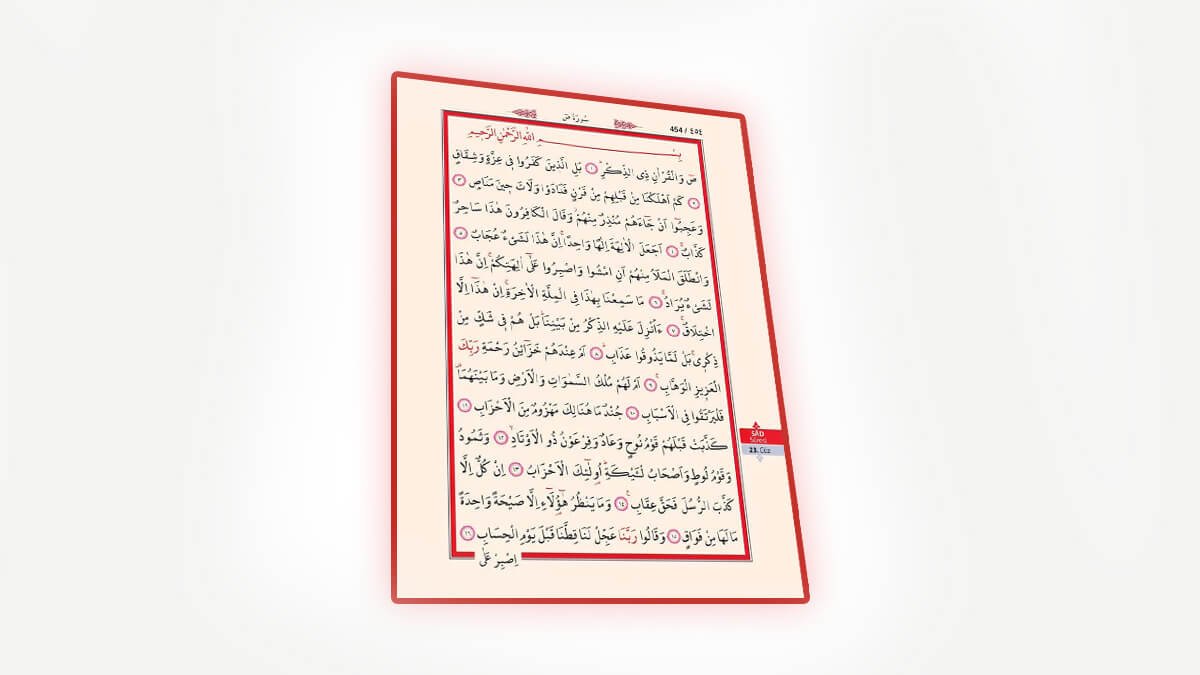 454 / ٤٥٤
سُورَةُ صٓ
بِسْــــمِ اللّٰهِ الرَّحْمٰنِ الرَّحٖيمِ
صٓ وَالْقُرْاٰنِ ذِى الذِّكْرِؕ ﴿١﴾ بَلِ الَّذٖينَ كَفَرُوا فٖى عِزَّةٍ وَشِقَاقٍ
﴿٢﴾ كَمْ اَهْلَكْنَا مِنْ قَبْلِهِمْ مِنْ قَرْنٍ فَنَادَوْا وَلَاتَ حٖينَ مَنَاصٍ ﴿٣﴾
وَعَجِبُٓوا اَنْ جَٓاءَهُمْ مُنْذِرٌ مِنْهُمْؗ وَقَالَ الْكَافِرُونَ هٰذَا سَاحِرٌ
كَذَّابٌۚ ﴿٤﴾ اَجَعَلَ الْاٰلِهَةَ اِلٰهًا وَاحِدًاۚ اِنَّ هٰذَا لَشَیْءٌ عُجَابٌ ﴿٥﴾
وَانْطَلَقَ الْمَلَاُ مِنْهُمْ اَنِ امْشُوا وَاصْبِرُوا عَلٰٓى اٰلِهَتِكُمْۚ اِنَّ هٰذَا
لَشَیْءٌ يُرَادُۚ ﴿٦﴾ مَا سَمِعْنَا بِهٰذَا فِى الْمِلَّةِ الْاٰخِرَةِۚ اِنْ هٰذَٓا اِلَّا
اخْتِلَاقٌۚ ﴿٧﴾ ءَاُنْزِلَ عَلَيْهِ الذِّكْرُ مِنْ بَيْنِنَاؕ بَلْ هُمْ فٖى شَكٍّ مِنْ
ذِكْرٖىۚ بَلْ لَمَّا يَذُوقُوا عَذَابِؕ ﴿٨﴾ اَمْ عِنْدَهُمْ خَزَٓائِنُ رَحْمَةِ رَبِّكَ
الْعَزٖيزِ الْوَهَّابِۚ ﴿٩﴾ اَمْ لَهُمْ مُلْكُ السَّمٰوَاتِ وَالْاَرْضِ وَمَا بَيْنَهُمَا۠
فَلْيَرْتَقُوا فِى الْاَسْبَابِ ﴿١٠﴾ جُنْدٌ مَا هُنَالِكَ مَهْزُومٌ مِنَ الْاَحْزَابِ ﴿١١﴾
كَذَّبَتْ قَبْلَهُمْ قَوْمُ نُوحٍ وَعَادٌ وَفِرْعَوْنُ ذُو الْاَوْتَادِۙ ﴿١٢﴾ وَثَمُودُ
وَقَوْمُ لُوطٍ وَاَصْحَابُ لْـَٔيْكَةِؕ اُو۬لٰٓئِكَ الْاَحْزَابُ ﴿١٣﴾ اِنْ كُلٌّ اِلَّا
كَذَّبَ الرُّسُلَ فَحَقَّ عِقَابِ۟ ﴿١٤﴾ وَمَا يَنْظُرُ هٰٓؤُ۬لَٓاءِ اِلَّا صَيْحَةً وَاحِدَةً
مَا لَهَا مِنْ فَوَاقٍ ﴿١٥﴾ وَقَالُوا رَبَّنَا عَجِّلْ لَنَا قِطَّنَا قَبْلَ يَوْمِ الْحِسَابِ ﴿١٦﴾
اِصْبِرْ عَلٰى
SÂD
Sûresi
23. Cüz